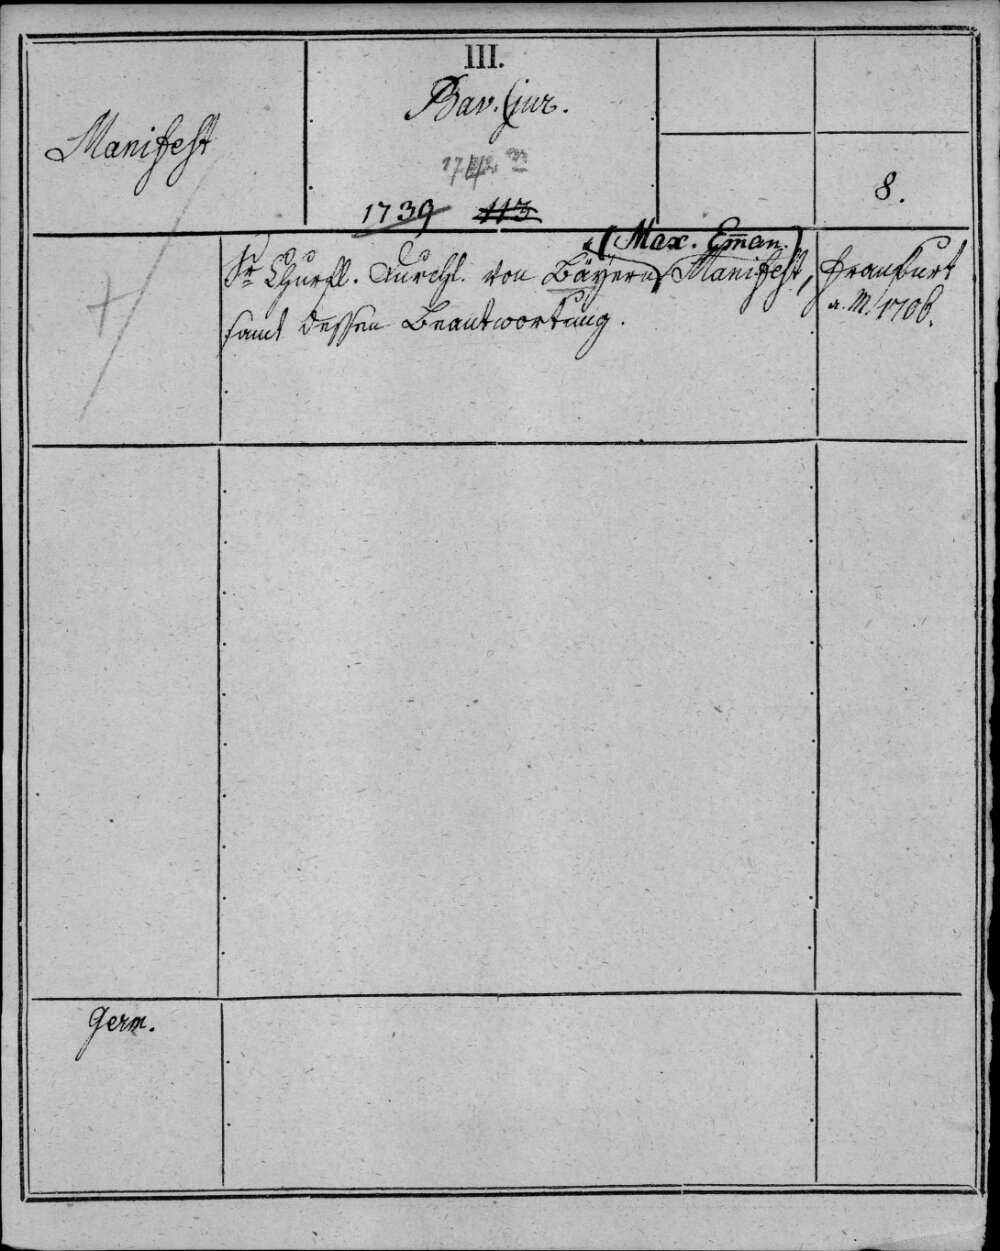 III.
Bav. Jur.
Manifest
1739 113
8.
(Max. Em̄an.)
Sr Churfl. Durchl. von Bäyern Manifest,
samt dessen Beantwortung.
Franfurt
a. M. 1706.
Germ.